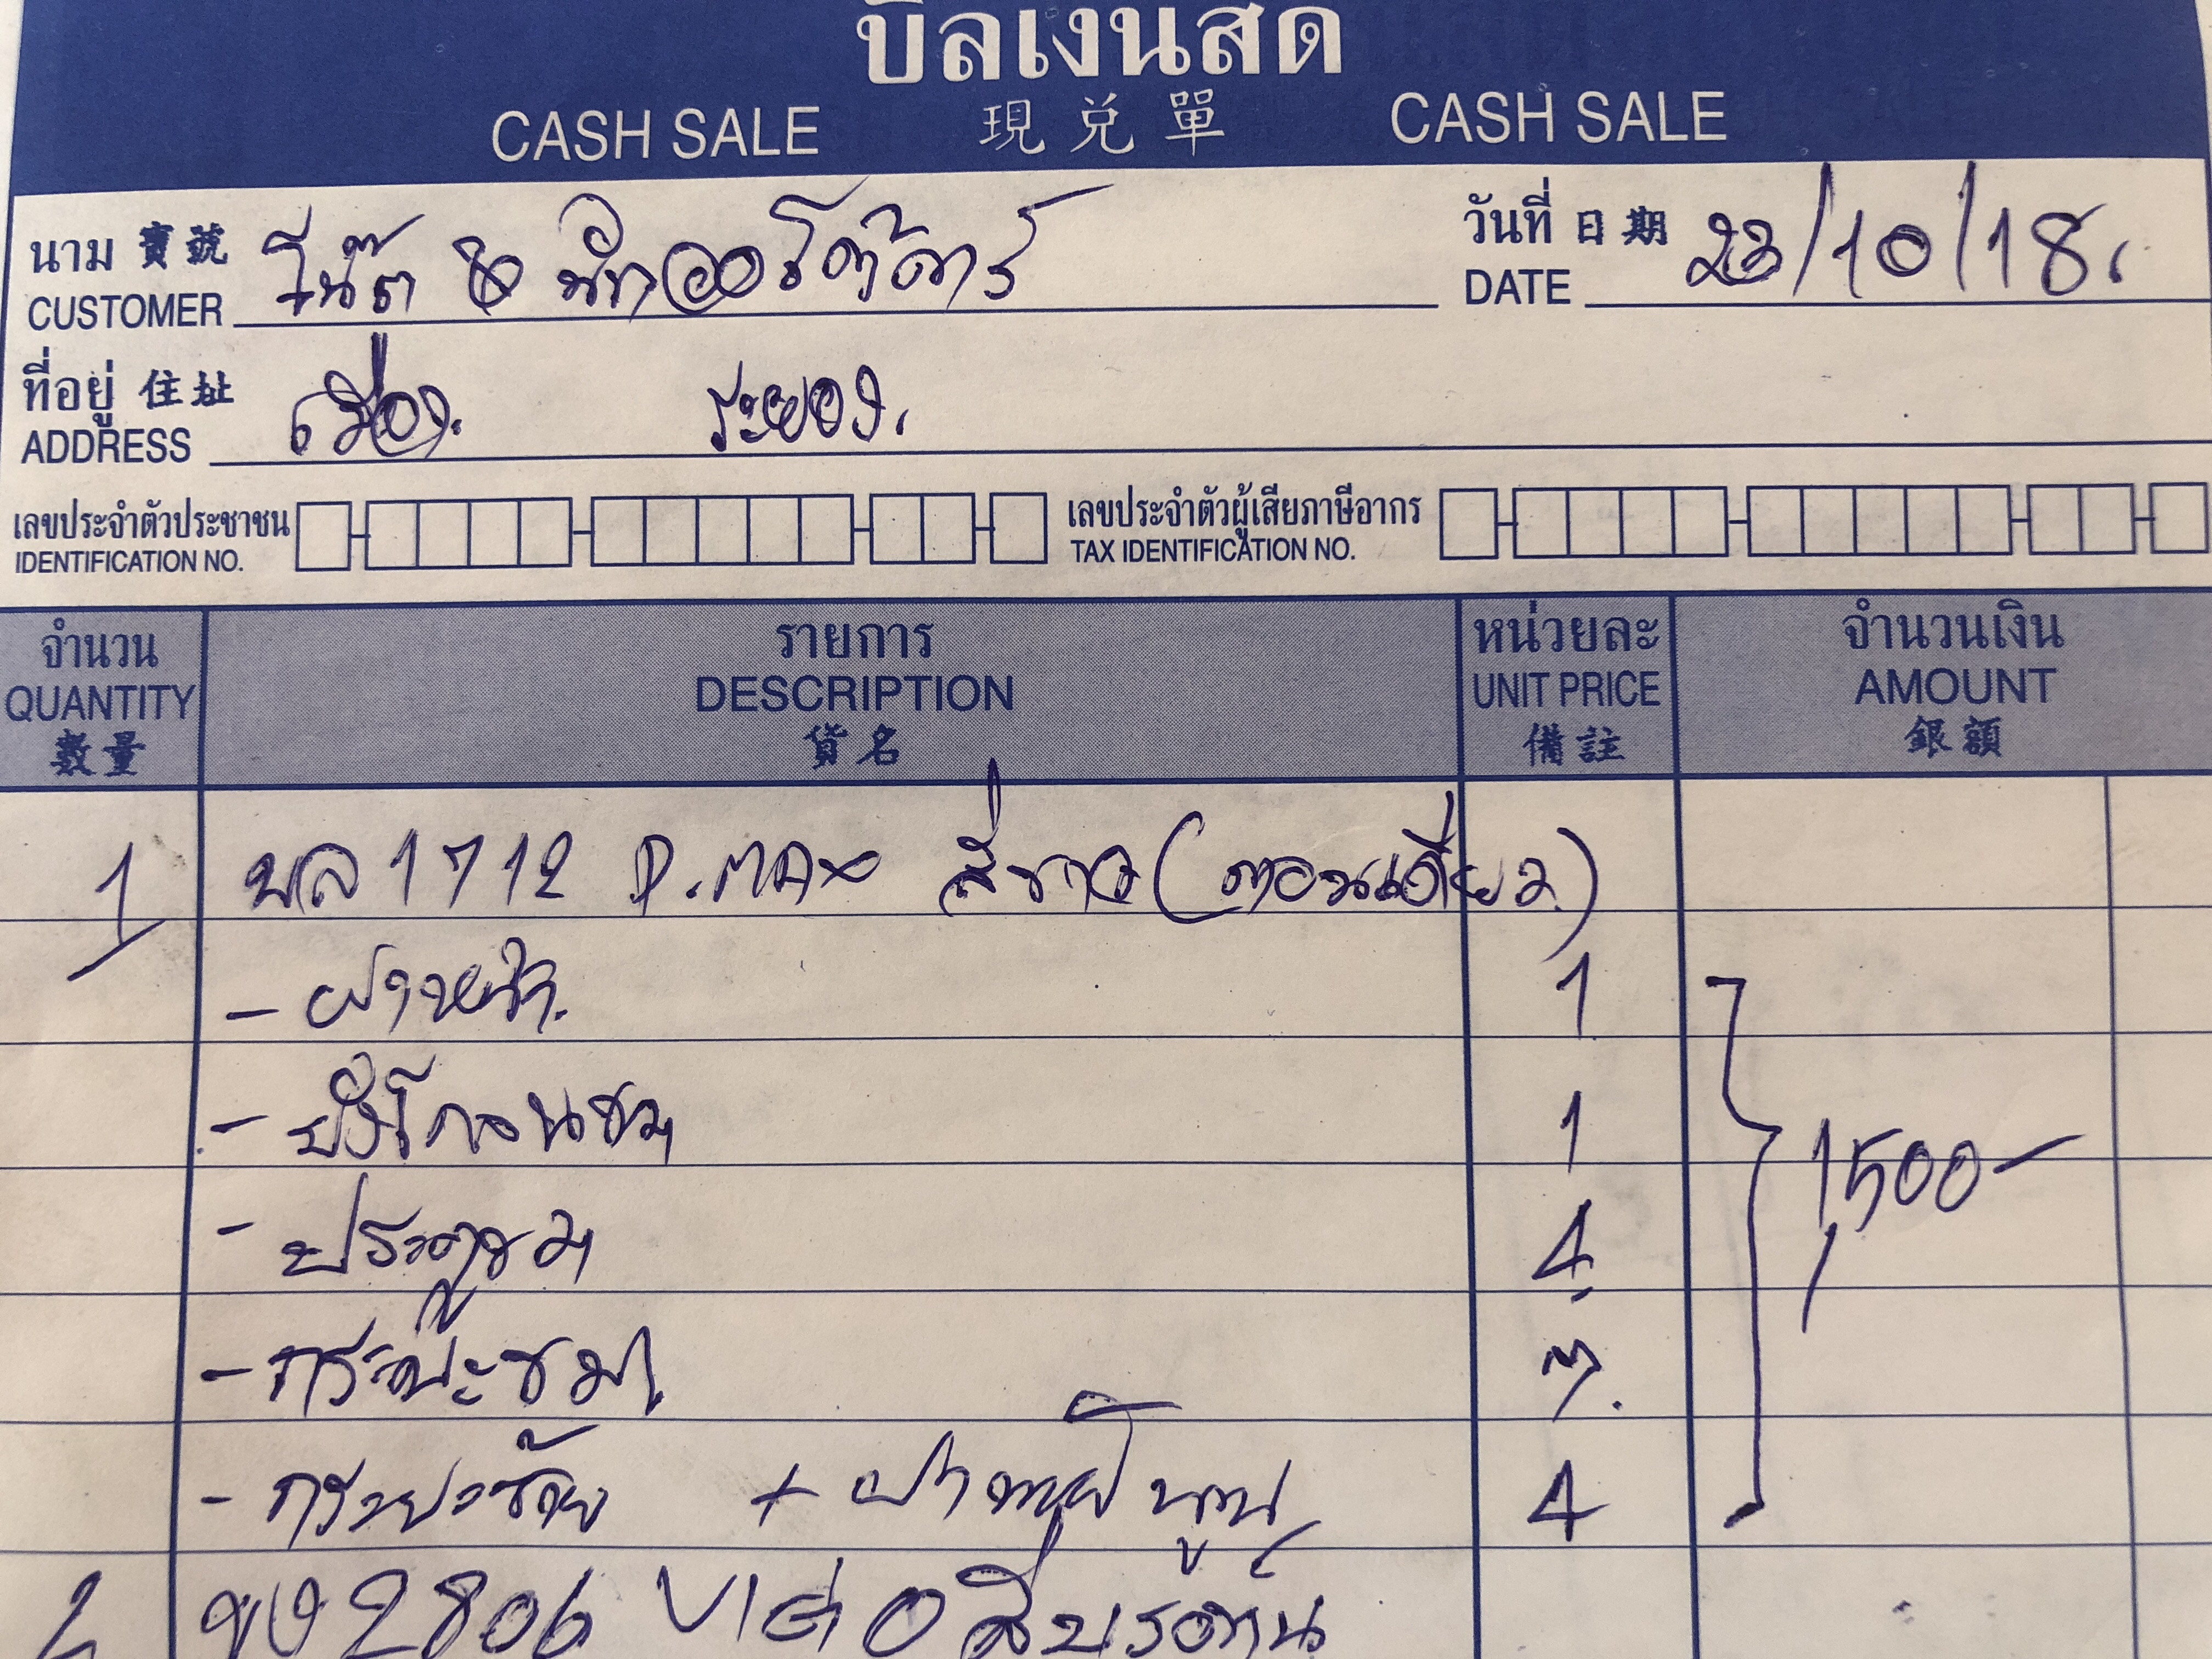 บิลเงินสด
CASH SALE 現兌單 CASH SALE
นาม 寶號 โน๊ต & นัทออโต้คาร์ วันที่ 日期 23/10/18
CUSTOMER DATE
ที่อยู่ 住址 เมือง. ระยอง.
ADDRESS
เลขประจำตัวประชาชน เลขประจำตัวผู้เสียภาษีอากร
IDENTIFICATION NO. TAX IDENTIFICATION NO.
จำนวน รายการ หน่วยละ จำนวนเงิน
QUANTITY DESCRIPTION UNIT PRICE AMOUNT
數量 貨名 備註 銀額
1 ผล 1712 D.MAX สีขาว (ตอนเดียว)
- ฝาหน้า. 1
- บังโคลนขวา 1
- ประตูขวา 4
- กระบะขวา
- กระบะซ้าย + ฝาท้าย 4
1,500-
2 2806 สีบรอนซ์